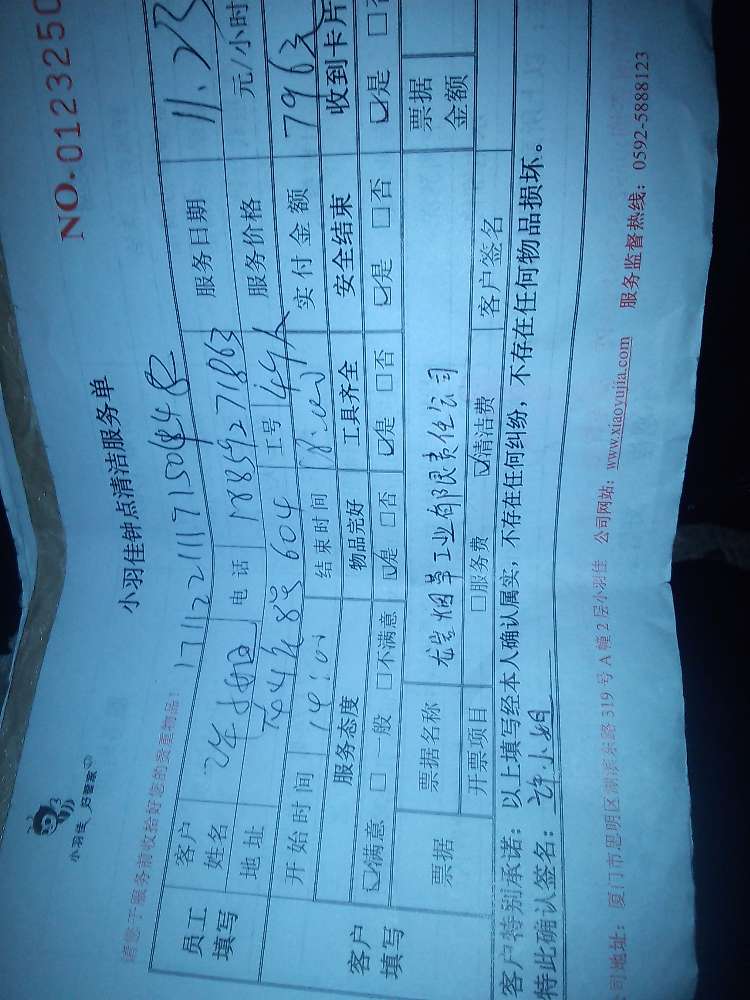 小羽佳 好管家
NO.0123250
小羽佳钟点清洁服务单
请您于服务前收拾好您的贵重物品!
员工填写
客户姓名 许小姐 电话 18859271863 服务日期 11.23
地址 工号 服务价格 元/小时
开始时间 14:00 结束时间 18:00 实付金额 796元
客户填写
服务态度 物品完好 工具齐全 安全结束 收到卡片
☑满意 □一般 □不满意 ☑是 □否 ☑是 □否 ☑是 □否 ☑是 □否
票据 票据名称 龙岩烟草工业有限责任公司 票据金额
开票项目 □服务费 ☑清洁费 客户签名
客户特别承诺：以上填写经本人确认属实，不存在任何纠纷，不存在任何物品损坏。
特此确认签名：许小姐
司地址：厦门市思明区湖滨东路 319 号 A 幢 2 层小羽佳 公司网站：www.xiaoyujia.com 服务监督热线：0592-5888123